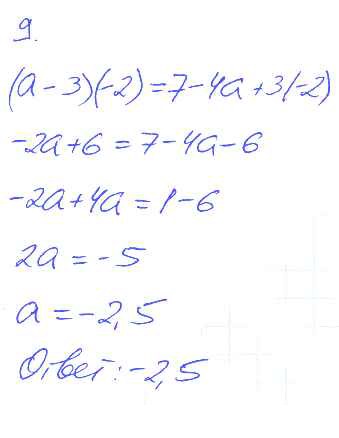 9.
(a-3)(-2)=7-4a+3(-2)
-2a+6=7-4a-6
-2a+4a=1-6
2a=-5
a=-2,5
Ответ:-2,5